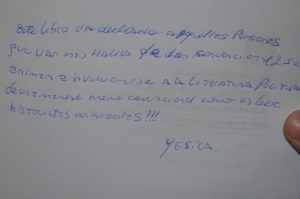 Este libro va dedicado a aquellas Personas
que van mas halla de lo convencional, y se
animan a involucrarse a la LITERATURA POLITICA
de una manera menos convencional como es leer
historietas animales!!!
YESICA.